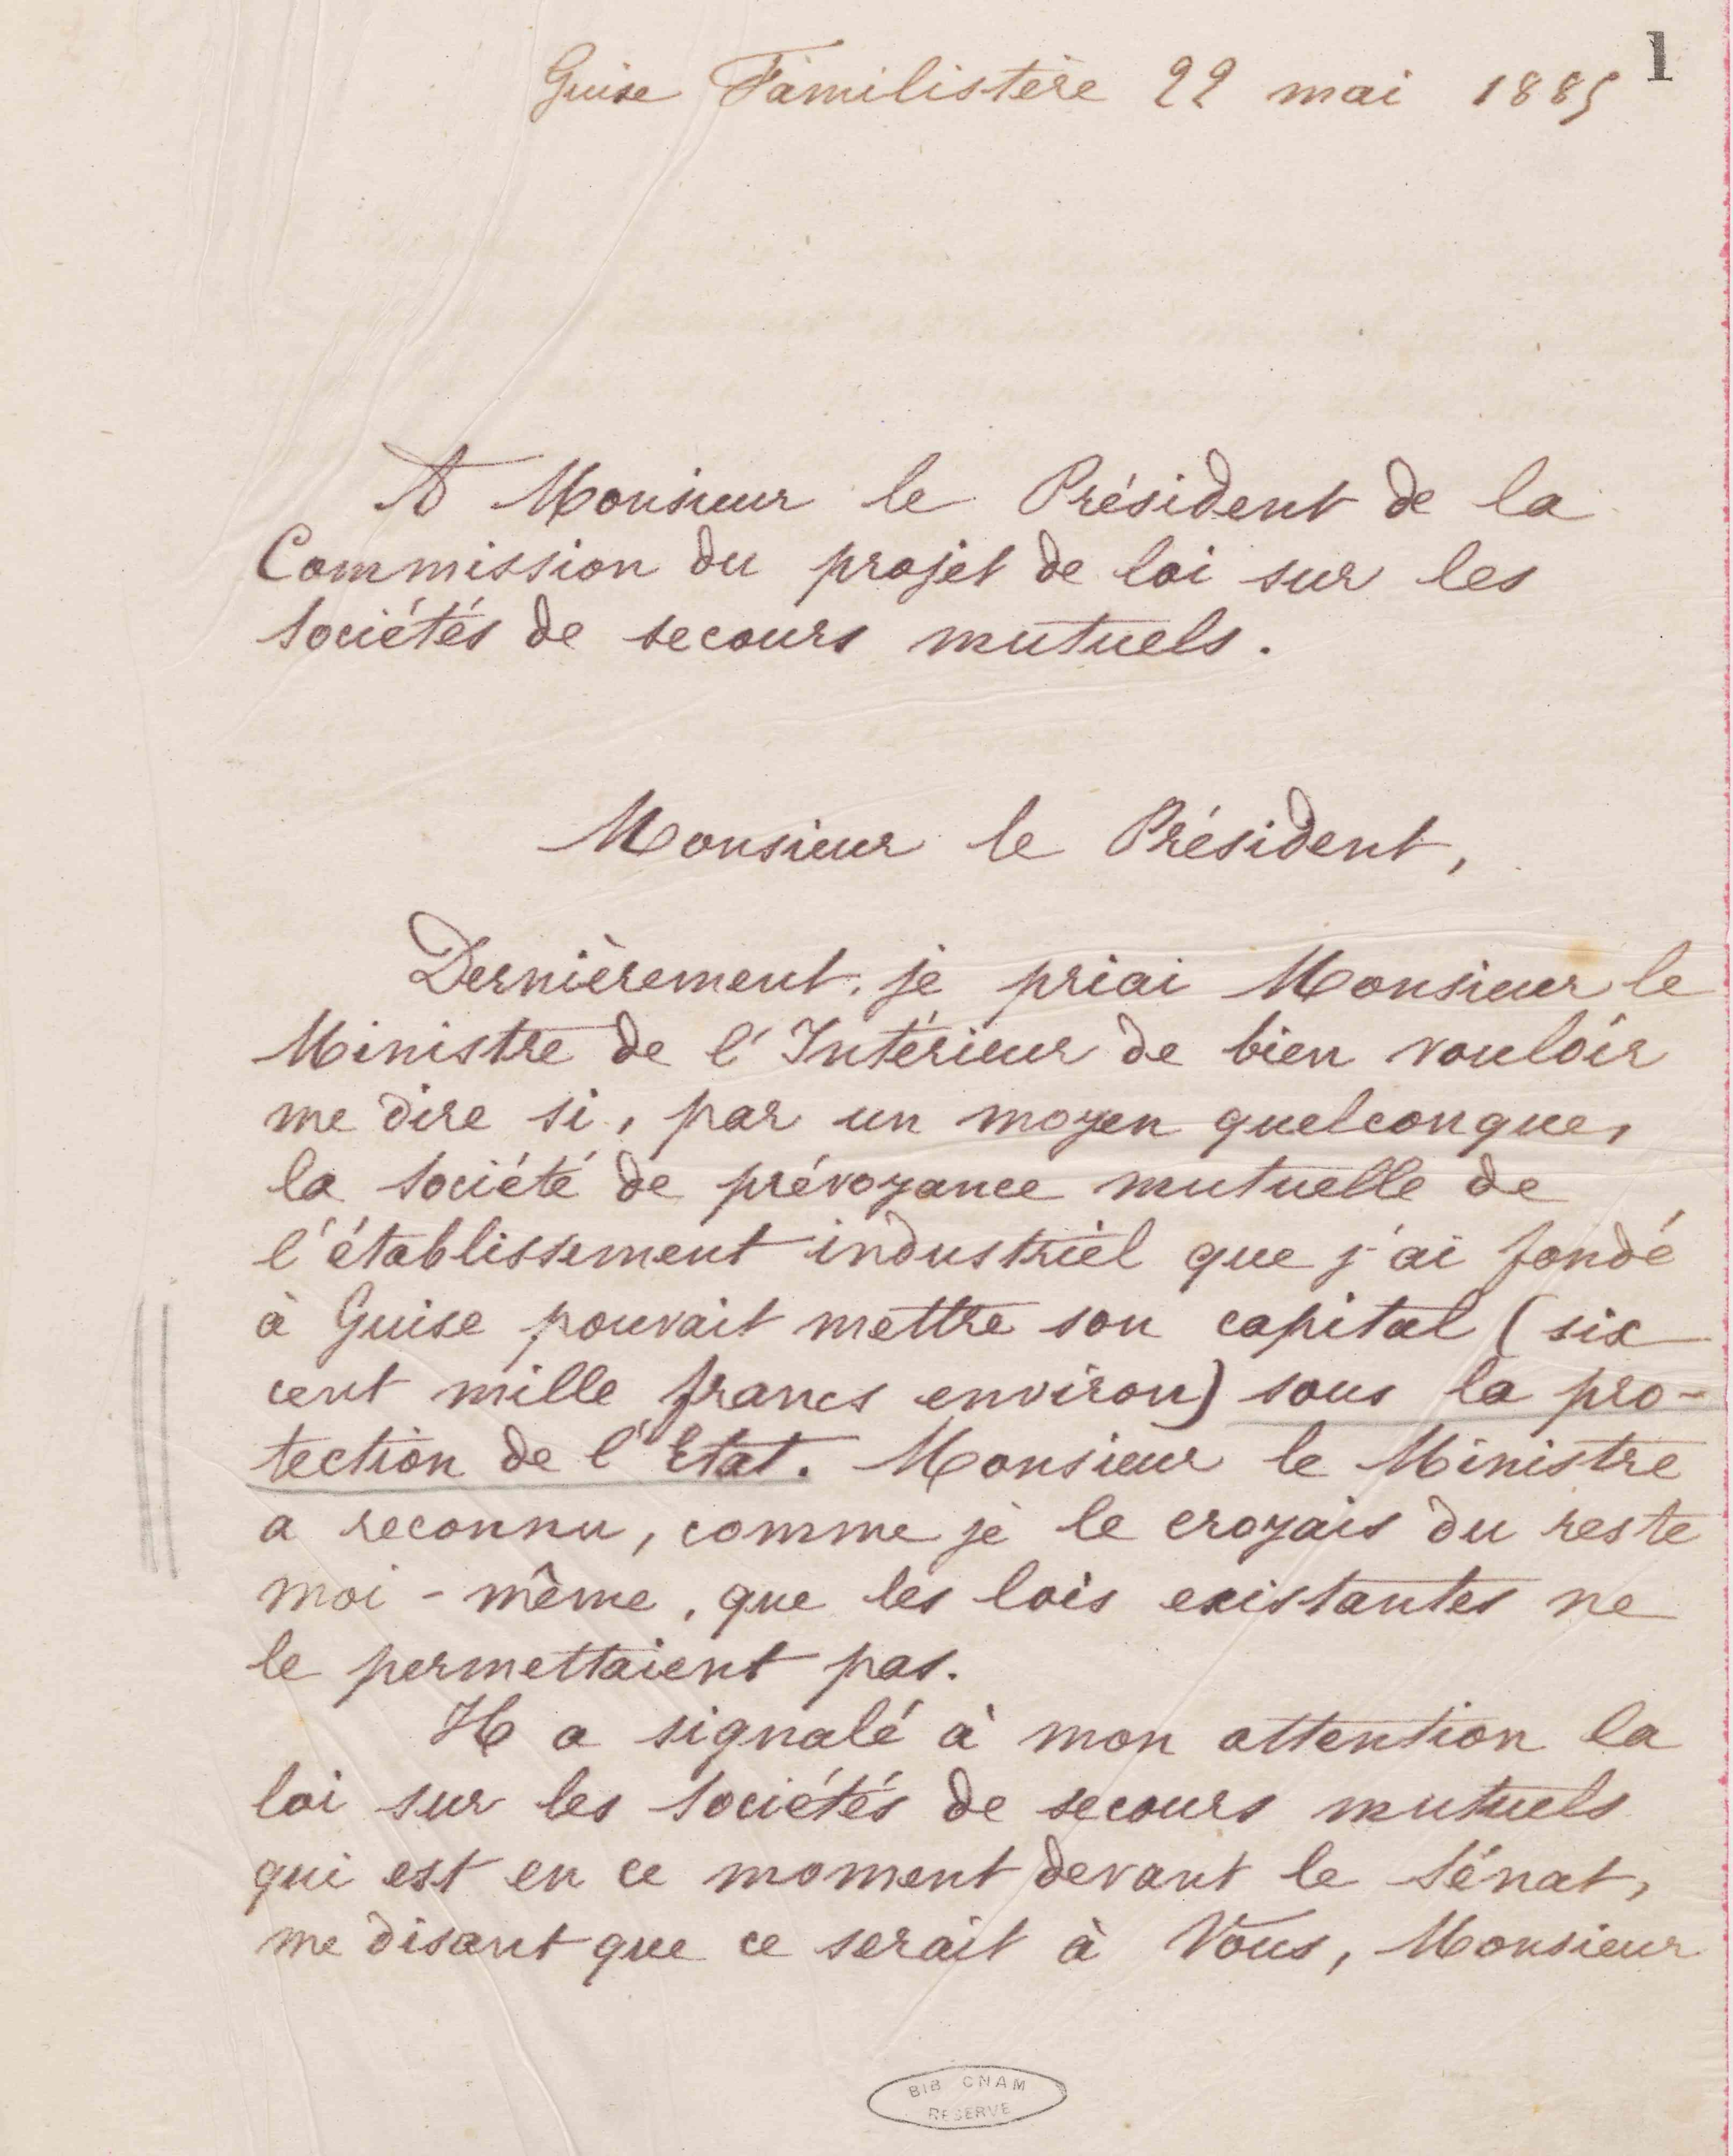 1
Guise Familistère 22 mai 1885
A Monsieur le Président de la
Commission du projet de loi sur les
Sociétés de secours mutuels.
Monsieur le Président,
Dernièrement, je priai Monsieur le
Ministre de l'Intérieur de bien vouloir
me dire si, par un moyen quelconque,
la Société de prévoyance mutuelle de
l'établissement industriel que j'ai fondé
à Guise pouvait mettre son capital (six
cent mille francs environ) sous la pro-
tection de l'Etat. Monsieur le Ministre
a reconnu, comme je le croyais du reste
moi-même, que les lois existantes ne
le permettaient pas.
Il a signalé à mon attention la
loi sur les Sociétés de secours mutuels
qui est en ce moment devant le Sénat,
me disant que ce serait à Vous, Monsieur
BIB CNAM
RESERVE